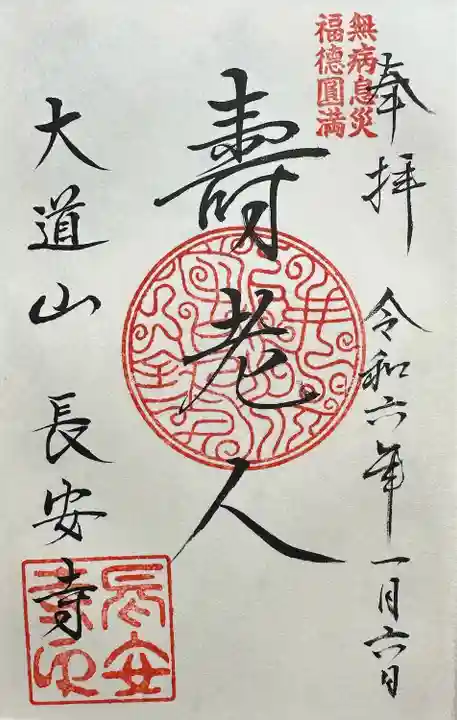 無病息災
福德圓満
奉拝 令和六年一月六日
壽老人
大道山 長安寺
長安寺印